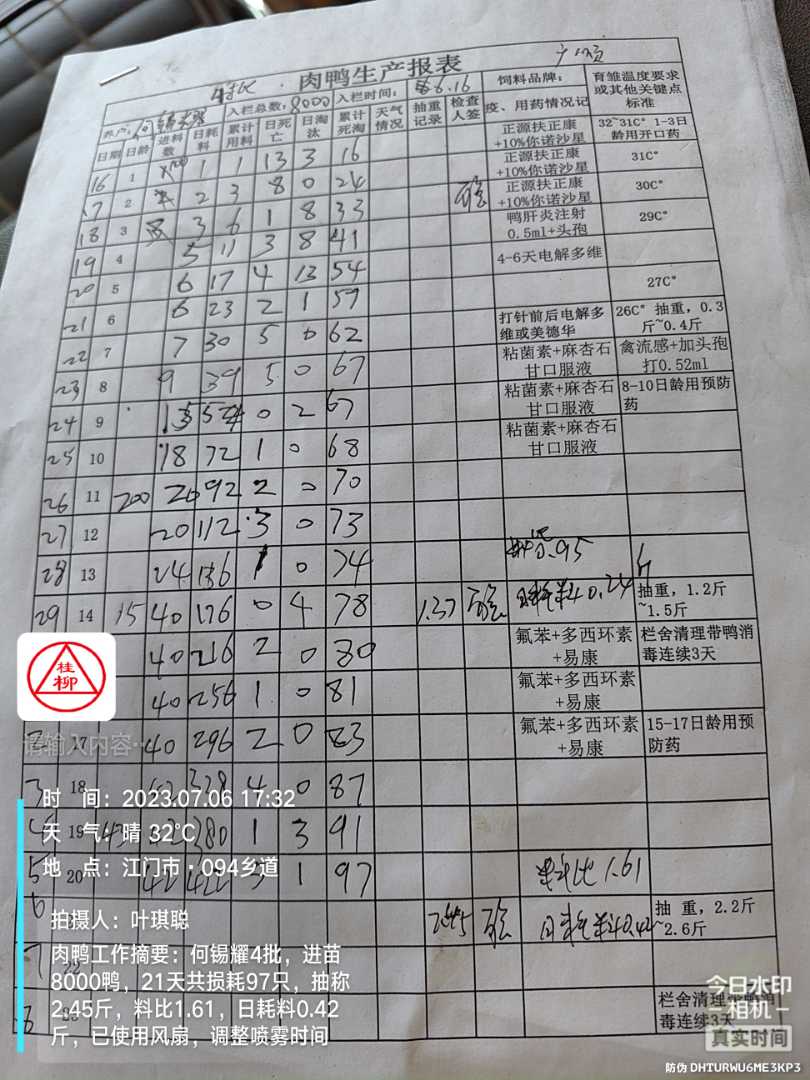 4批 肉鸭生产报表
养户: 入栏总数: 8000 入栏时间: 6.16 抽重记录 检查人签 饲料品牌: 疫、用药情况记 育雏温度要求或其他关键点标准
日期 日龄 进料数 日耗料 累计用料 日死亡 日淘汰 累计死淘 天气情况
16 1 1 1 13 3 16 正源扶正康+10%你诺沙星 32~31C° 1-3日龄用开口药
17 2 2 3 8 0 24 正源扶正康+10%你诺沙星 31C°
18 3 3 6 1 8 33 正源扶正康+10%你诺沙星 30C°
19 4 5 11 3 8 41 鸭肝炎注射0.5ml+头孢 29C°
20 5 6 17 4 13 54 4-6天电解多维
21 6 6 23 2 1 59 27C°
22 7 7 30 5 0 62 打针前后电解多维或美德华 26C° 抽重,0.3斤~0.4斤
23 8 9 39 5 0 67 粘菌素+麻杏石甘口服液 禽流感+加头孢打0.52ml
24 9 15 54 0 2 67 粘菌素+麻杏石甘口服液 8-10日龄用预防药
25 10 18 72 1 0 68 粘菌素+麻杏石甘口服液
26 11 200 20 92 2 0 70
27 12 20 112 3 0 73
28 13 24 136 1 0 74 0.95
29 14 15 40 176 0 4 78 1.37 日耗料0.24斤 抽重,1.2斤~1.5斤
40 216 2 0 80 氟苯+多西环素+易康 栏舍清理带鸭消毒连续3天
40 256 1 0 81 氟苯+多西环素+易康
2 17 40 296 2 0 83 氟苯+多西环素+易康 15-17日龄用预防药
3 18 42 338 4 0 87
4 19 42 380 1 3 91
5 20 42 422 3 1 97 料比1.61
6 2.45 日耗料0.42 抽 重,2.2斤~2.6斤
7 22
8 栏舍清理带鸭消毒连续3天
桂柳
请输入内容…
时 间:2023.07.06 17:32
天 气:晴 32℃
地 点:江门市·094乡道
拍摄人:叶琪聪
肉鸭工作摘要:何锡耀4批,进苗
8000鸭,21天共损耗97只,抽称
2.45斤,料比1.61,日耗料0.42
斤,已使用风扇,调整喷雾时间
今日水印
相机
真实时间
防伪 DHTURWU6ME3KP3